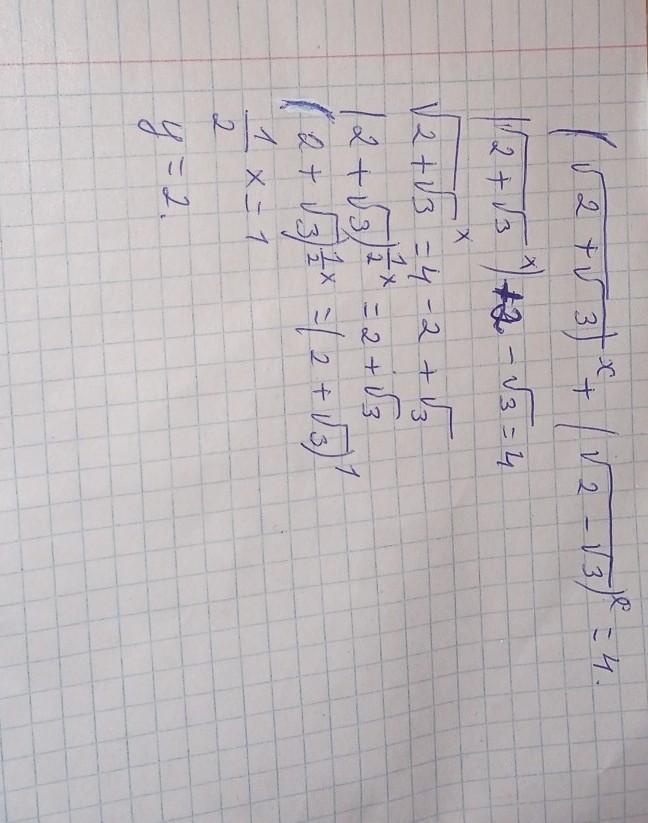 (√(2+√3))^x + (√(2-√3))^x = 4.
(√(2+√3)^x) +2 - √3 = 4
√(2+√3)^x = 4 - 2 + √3
(2+√3)^(1/2 x) = 2+√3
(2+√3)^(1/2 x) = (2+√3)^1
1/2 x = 1
y = 2.